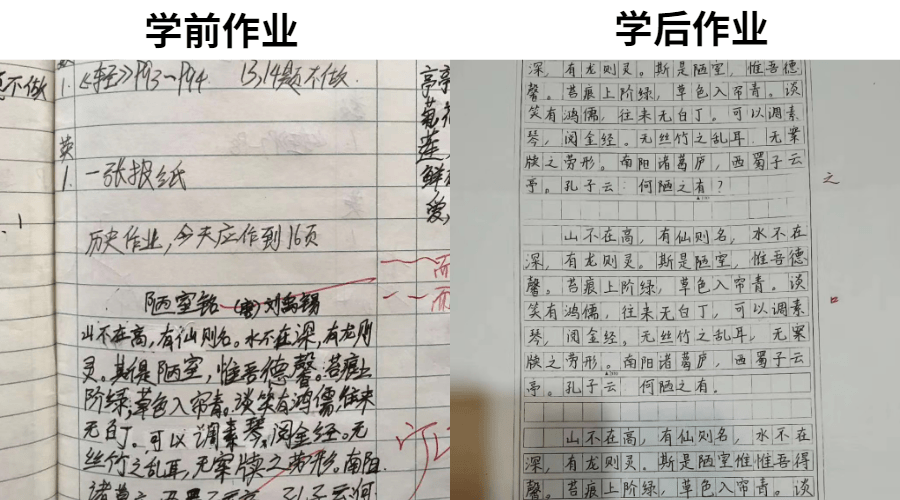 学前作业
不做
1. 《轻》P93~P94 13,14题不做.
英
1. 一张报纸
历史作业,今天应作到16页
陋室铭 (唐) 刘禹锡
山不在高,有仙则名。水不在深,有龙则
灵。斯是陋室,惟吾德馨。苔痕上
阶绿,草色入帘青。谈笑有鸿儒,往来
无白丁。可以调素琴,阅金经。无
丝竹之乱耳,无案牍之劳形。南阳
诸葛
亭
葡
莲
鲜
爱,
而
而
学后作业
深,有龙则灵。斯是陋室,惟吾德
馨。苔痕上阶绿,草色入帘青。谈
笑有鸿儒,往来无白丁。可以调素
琴,阅金经。无丝竹之乱耳,无案
牍之劳形。南阳诸葛庐,西蜀子云
亭。孔子云:何陋之有?
之
山不在高,有仙则名,水不在
深,有龙则灵。斯是陋室,惟吾德
馨。苔痕上阶绿,草色入帘青。谈
笑有鸿儒,往来无白丁,可以调素
琴,阅金经。无丝竹之乱耳,无案
牍之劳形。南阳诸葛庐,西蜀子云
亭。孔子云:何陋之有。
山不在高,有仙则名,水不在
深,有龙则灵。斯是陋室惟惟吾得
馨。苔痕上阶绿,草色入帘青。谈